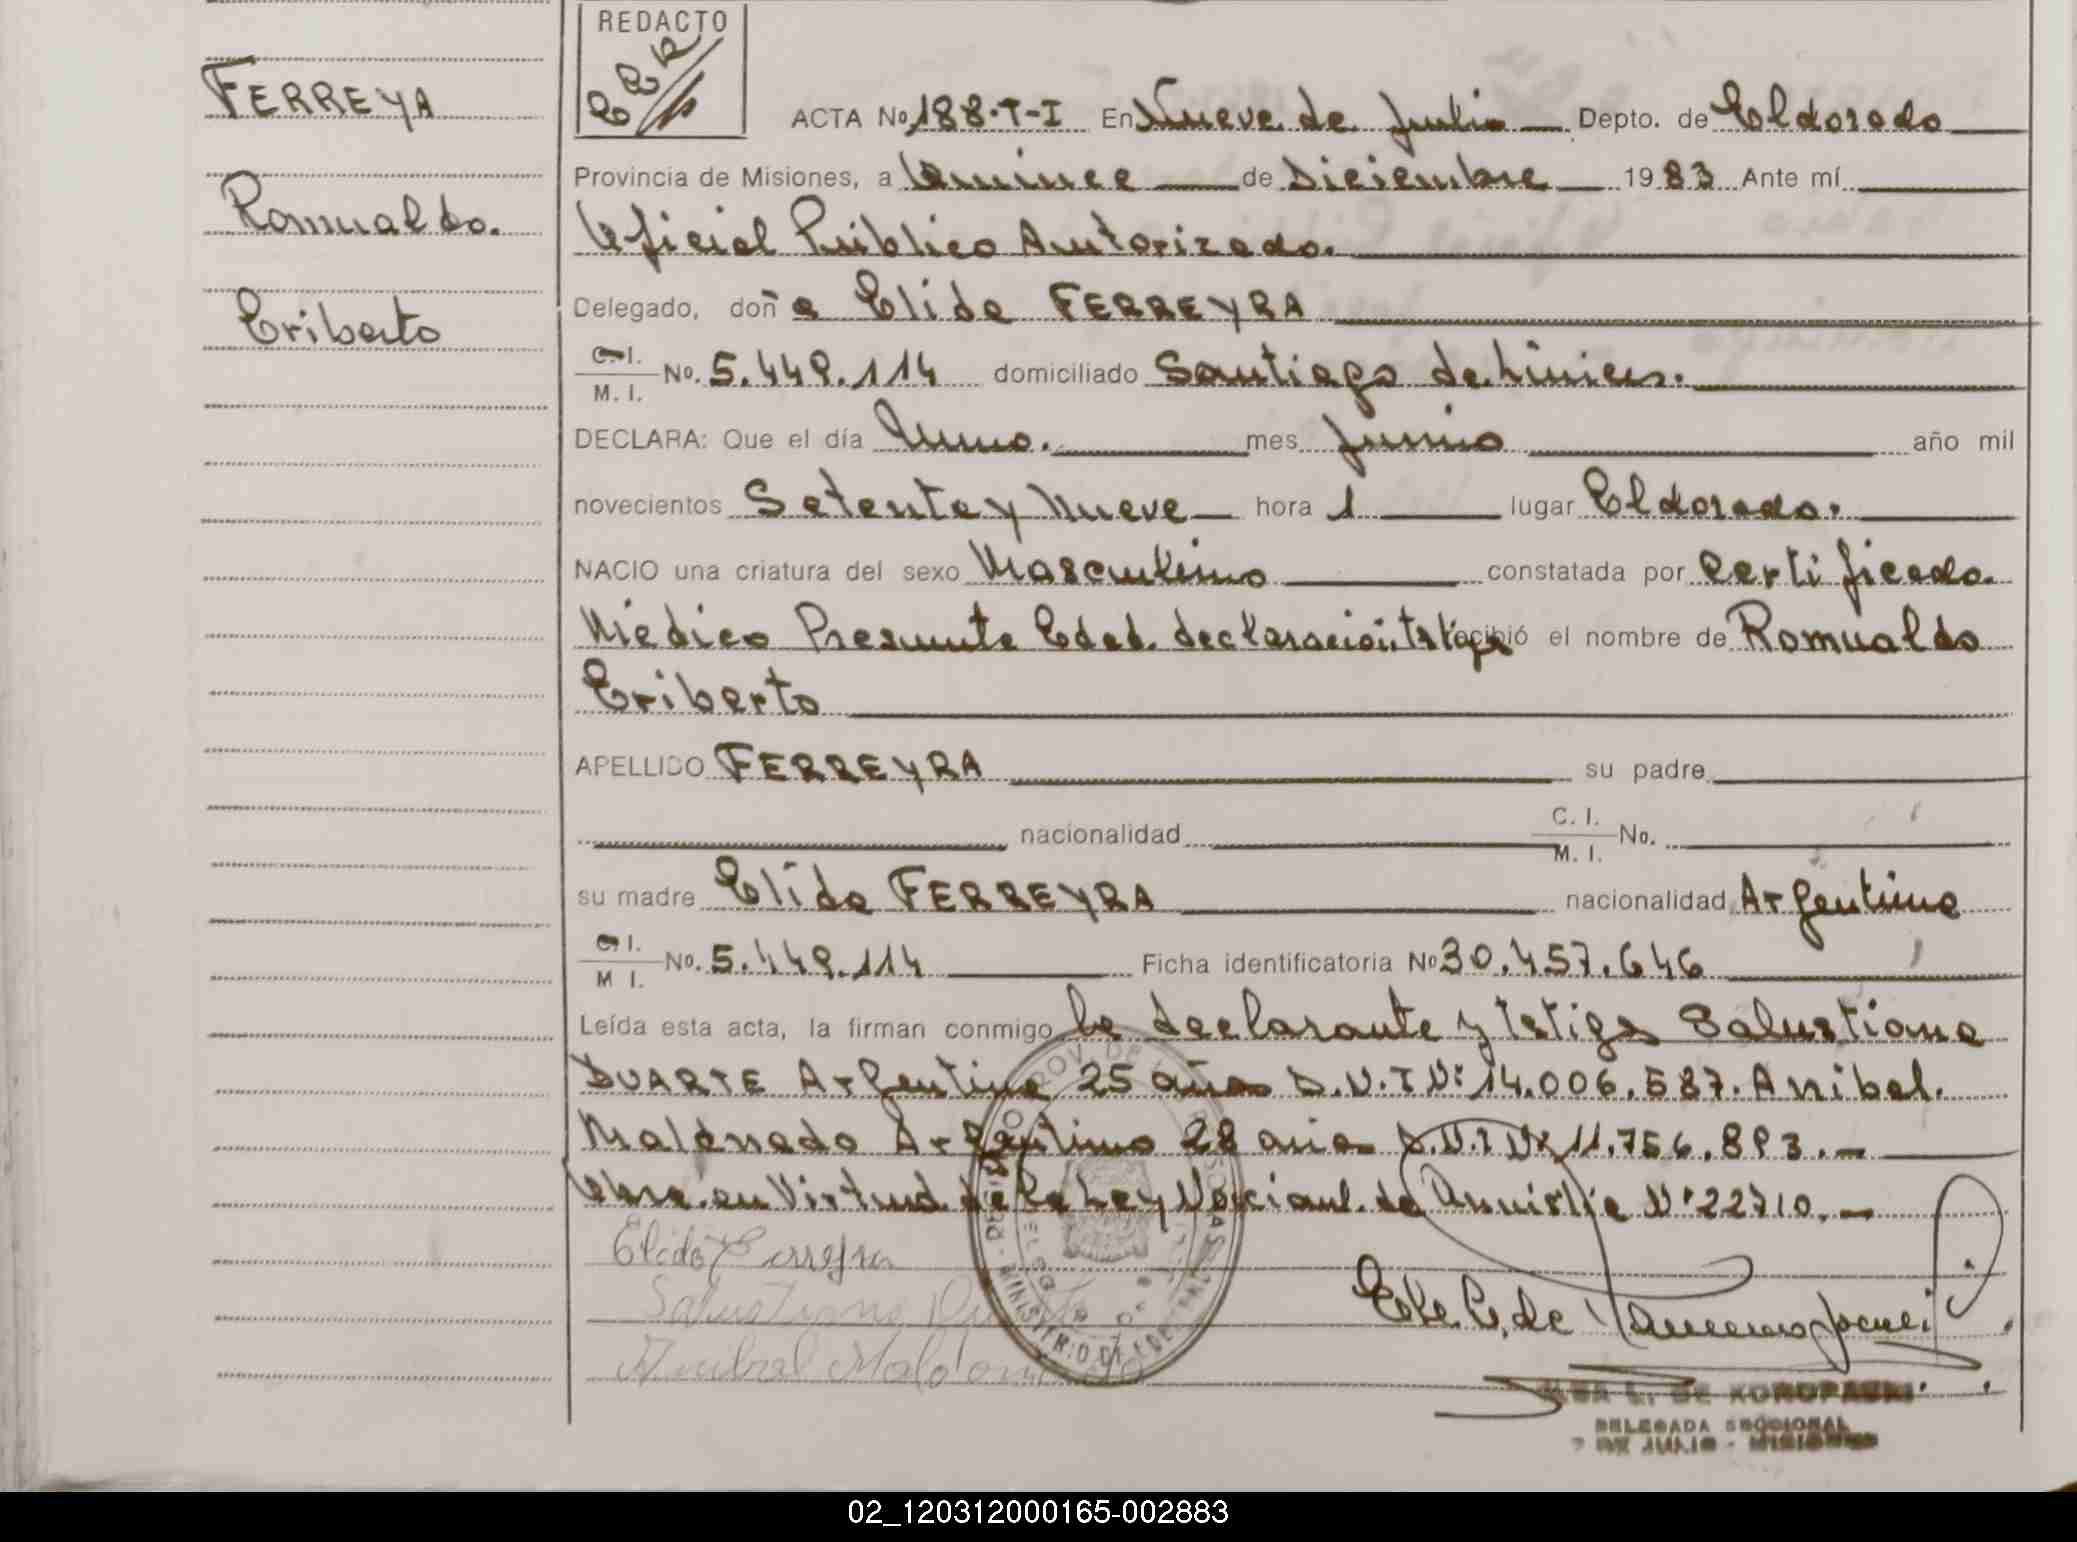 REDACTO
FERREYA
Romualdo.
Eriberto
ACTA No 188.T-I En Nueve de Julio Depto. de Eldorado
Provincia de Misiones, a Quince de Diciembre 1983 Ante mí
Oficial Público Autorizado.
Delegado, doña Elida FERREYRA
C.I. M.I. No. 5.449.114 domiciliado Santiago de Liniers.
DECLARA: Que el día Uno. mes Junio año mil
novecientos Setenta y Nueve hora 1 lugar Eldorado.
NACIO una criatura del sexo Masculino constatada por Certificado
Médico Presunta Edad. declaración Testigo recibió el nombre de Romualdo
Eriberto
APELLIDO FERREYRA su padre
nacionalidad C. I. M. I. No.
su madre Elida FERREYRA nacionalidad Argentina
C.I. M I. No. 5.449.114 Ficha identificatoria No 30.457.646
Leída esta acta, la firman conmigo la declarante y testigos Salustiana
DUARTE Argentina 25 años D.N.I Nº 14.006.587. Anibal.
Maldonado Argentino 28 años D.N.I Nº 11.756.893.-
Obra en Virtud de la Ley Nacional de Amnistia Nº 22710.-
Elida Ferreyra
Salustiana Duarte
Anibal Maldonado
L. DE KOROPESKI
DELEGADA SECCIONAL
9 DE JULIO - MISIONES
02_120312000165-002883